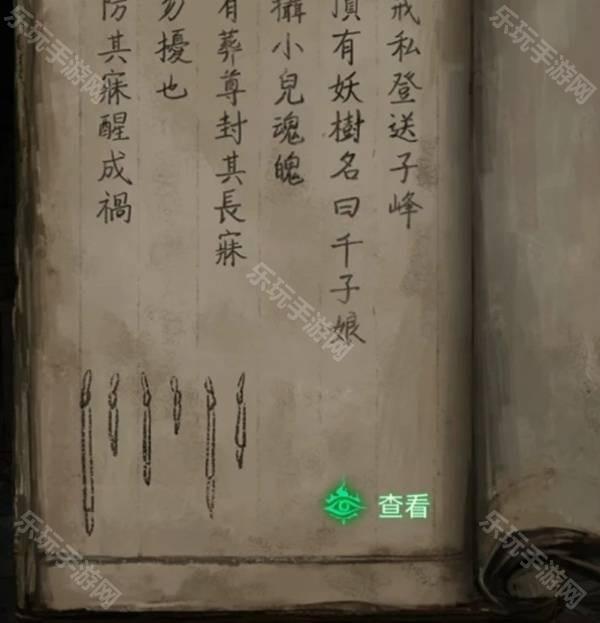 戒私登送子峰
頂有妖樹名曰千子娘
攝小兒魂魄
有葬尊封其長寐
勿擾也
防其寐醒成禍
查看
乐玩手游网
乐玩手游网
乐玩手游网
乐玩手游网
乐玩手游网